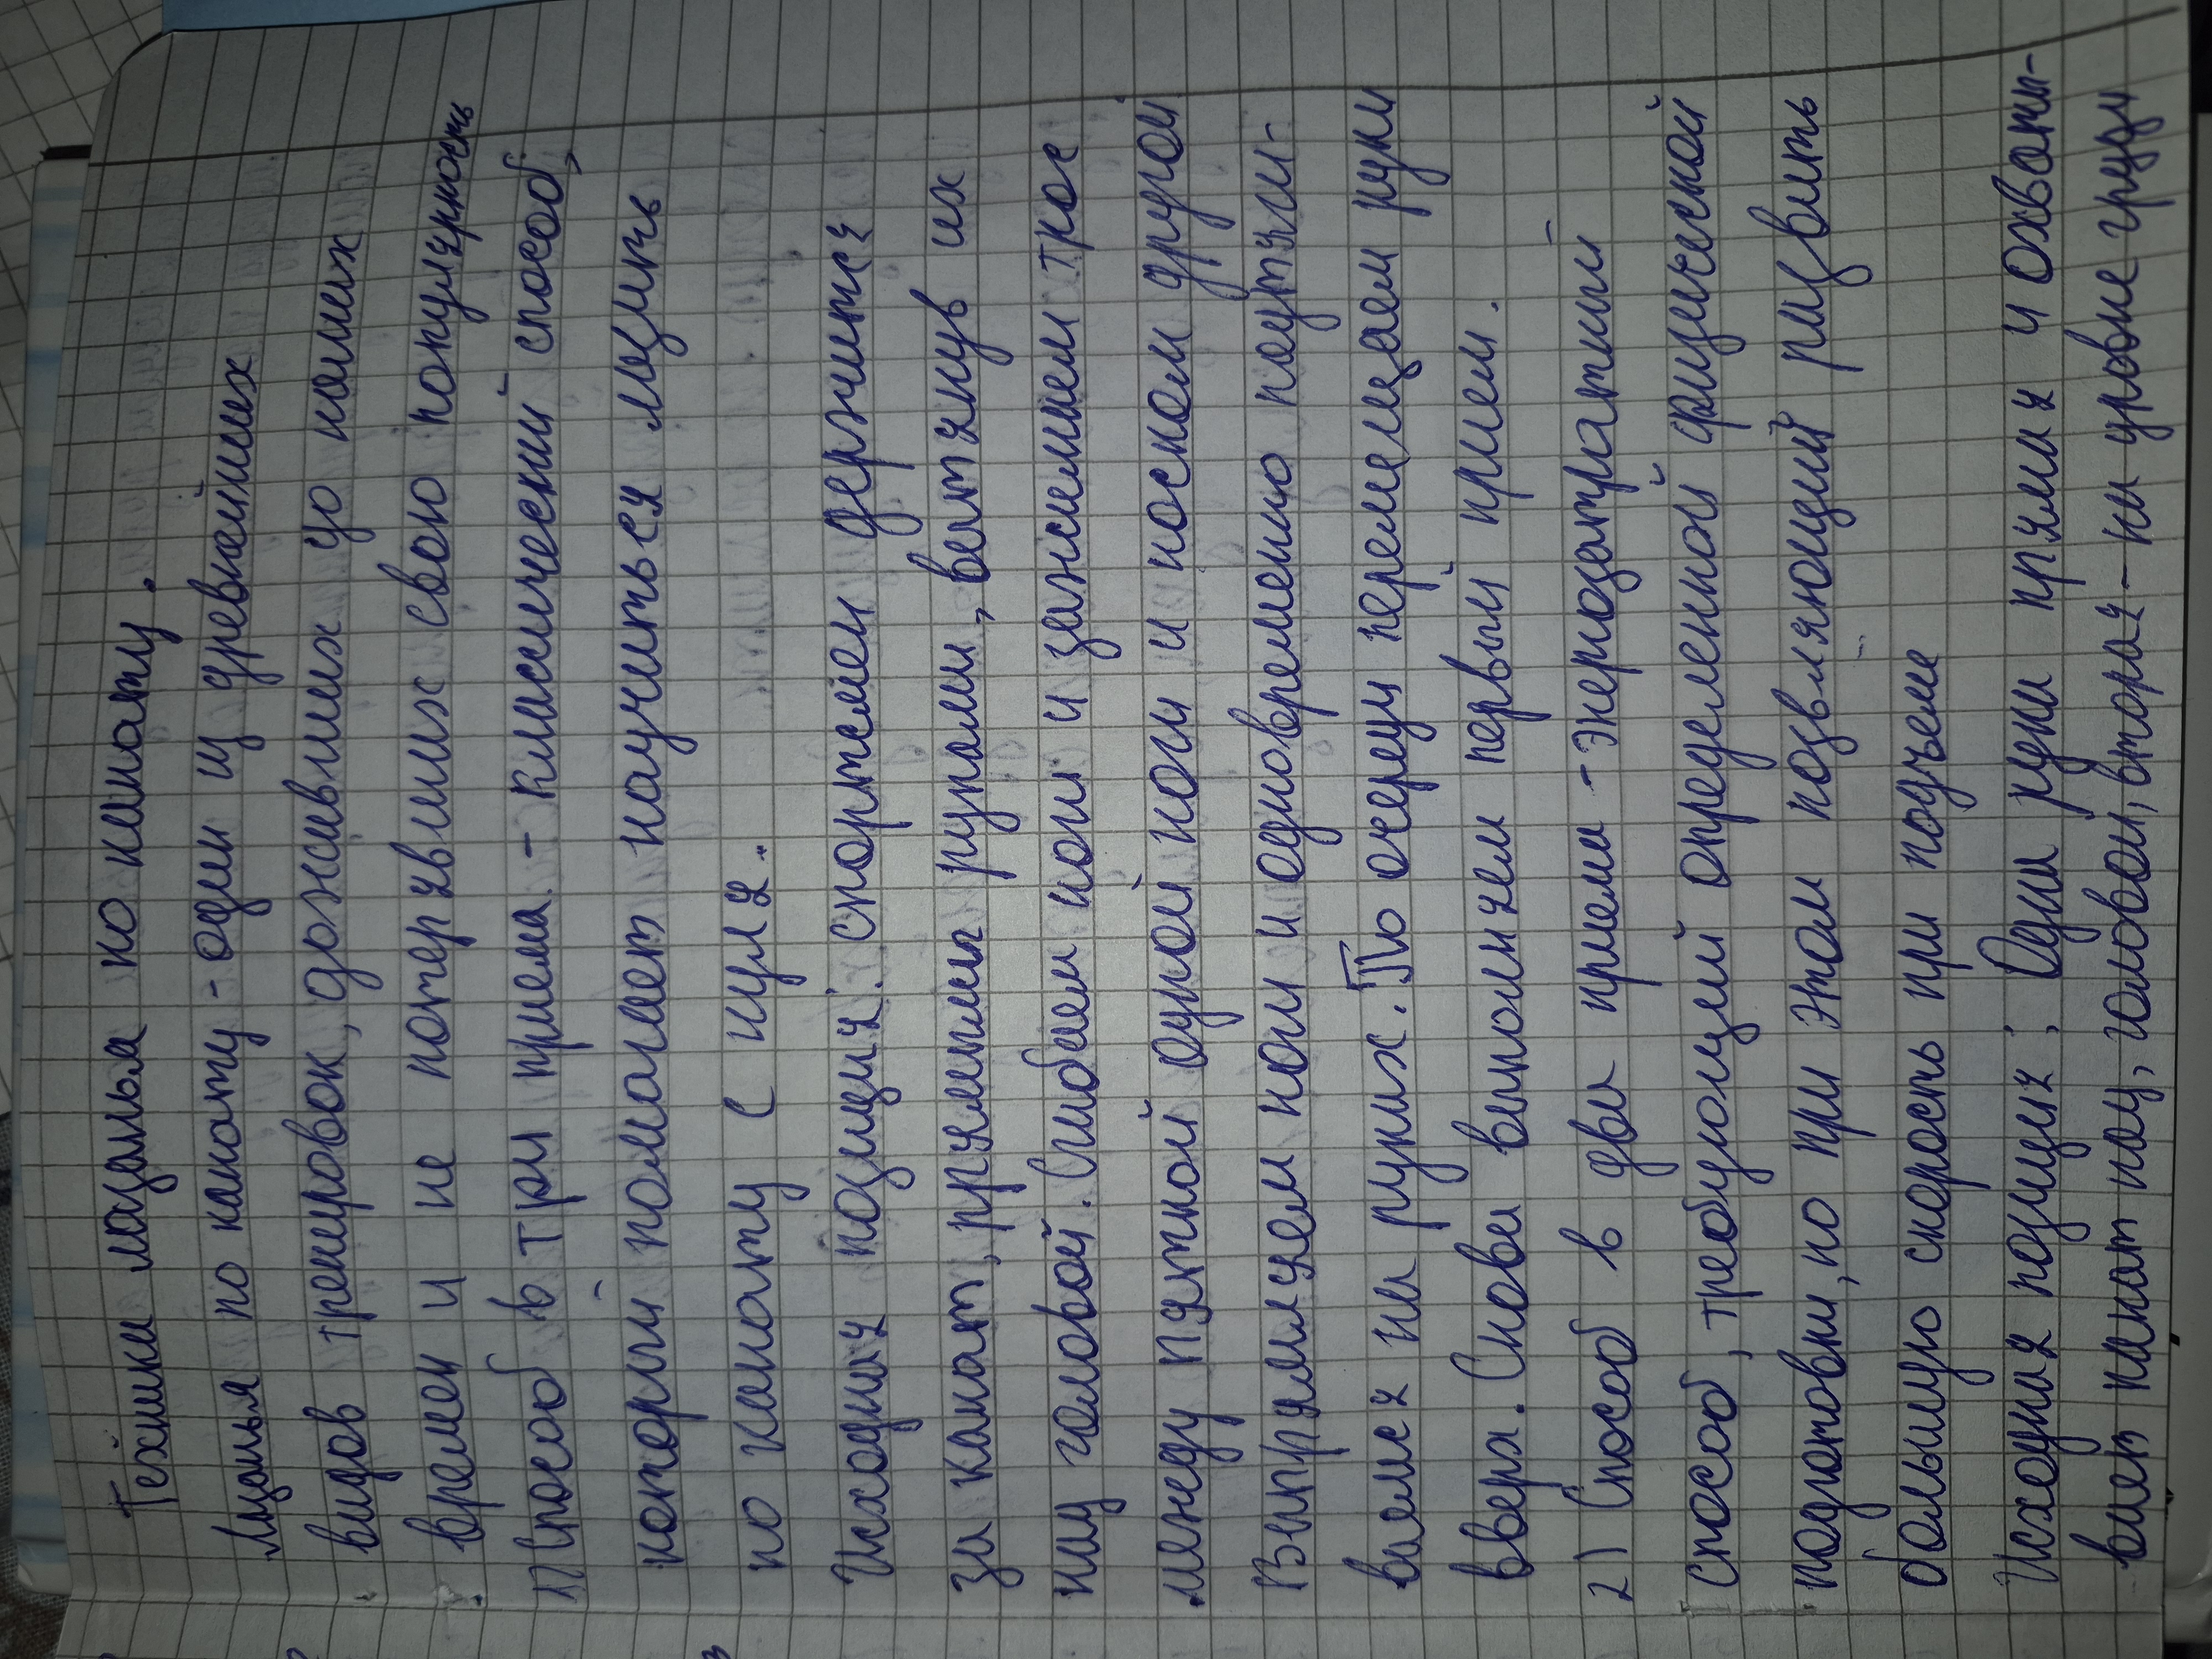 Техника лазанья по канату.
Лазанья по канату - один из древнейших
видов тренировок, доживших до наших
времен и не потерявших свою популярность
1) Способ в три приема - классический способ,
который помогает научиться лазить
по канату с нуля.
Исходная позиция: спортсмен держится
за канат, прямыми руками, вытянув их
над головой. Сгибаем ноги и зажимаем трос
между пяткой одной ноги и носком другой
Выпрямляем ноги и одновременно подтяги-
ваемся на руках. По очереди перемещаем руки
вверх. Снова выполняем первый прием.
2) Способ в два приема - энергозатратный
способ, требующий определенной физической
подготовки, но при этом позвляющий развить
большую скорость при подъеме
Исходная позиция: Одна рука прямая и охваты-
вает канат над головой, вторая - на уровне груди